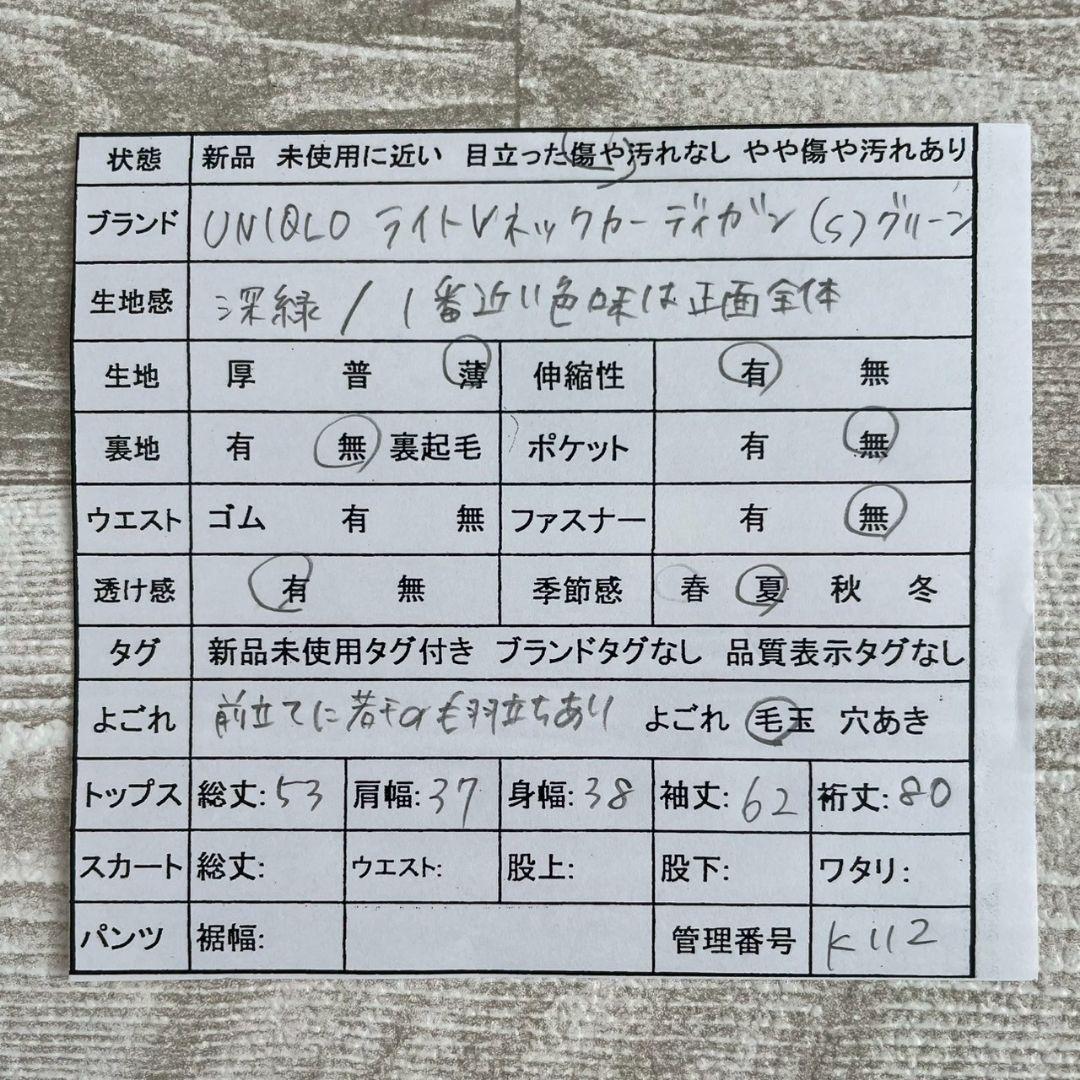 状態 新品 未使用に近い 目立った傷や汚れなし やや傷や汚れあり
ブランド UNIQLO ライトVネックカーディガン(S)グリーン
生地感 深緑/1番近い色味は正面全体
生地 厚 普 薄 伸縮性 有 無
裏地 有 無 裏起毛 ポケット 有 無
ウエスト ゴム 有 無 ファスナー 有 無
透け感 有 無 季節感 春 夏 秋 冬
タグ 新品未使用タグ付き ブランドタグなし 品質表示タグなし
よごれ 前立てに若干の毛羽立ちあり よごれ 毛玉 穴あき
トップス 総丈:53 肩幅:37 身幅:38 袖丈:62 裄丈:80
スカート 総丈: ウエスト: 股上: 股下: ワタリ:
パンツ 裾幅: 管理番号 K112